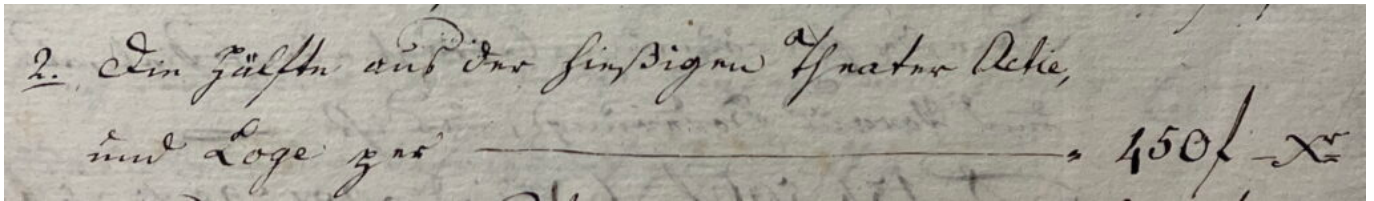 2. Die Hälfte aus der hießigen Theater Actie,
und Loge per — 450f – Xr